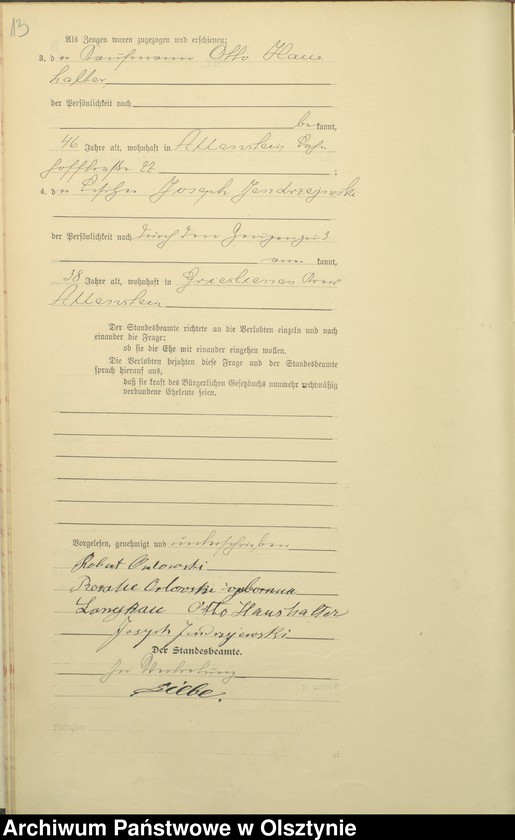 13
Als Zeugen waren zugezogen und erschienen:
3. der Kaufmann Otto Haus
halter
der Persönlichkeit nach
bekannt,
46 Jahre alt, wohnhaft in Allenstein Bahn
hofstraße 22 ;
4. der Besitzer Joseph Jendrzejewski
der Persönlichkeit nach durch den Zeugen zu 3
aner kannt,
38 Jahre alt, wohnhaft in Grieslienen Kreis
Allenstein
Der Standesbeamte richtete an die Verlobten einzeln und nach
einander die Frage:
ob sie die Ehe mit einander eingehen wollen.
Die Verlobten bejahten diese Frage und der Standesbeamte
sprach hierauf aus,
daß sie kraft des Bürgerlichen Gesetzbuchs nunmehr rechtmäßig
verbundene Eheleute seien.
Vorgelesen, genehmigt und unterschrieben
Robert Orlowski
Rosalie Orlowski geborene
Langkau Otto Haushalter
Joseph Jendrzejewski
Der Standesbeamte.
In Vertretung
Archiwum Państwowe w Olsztynie